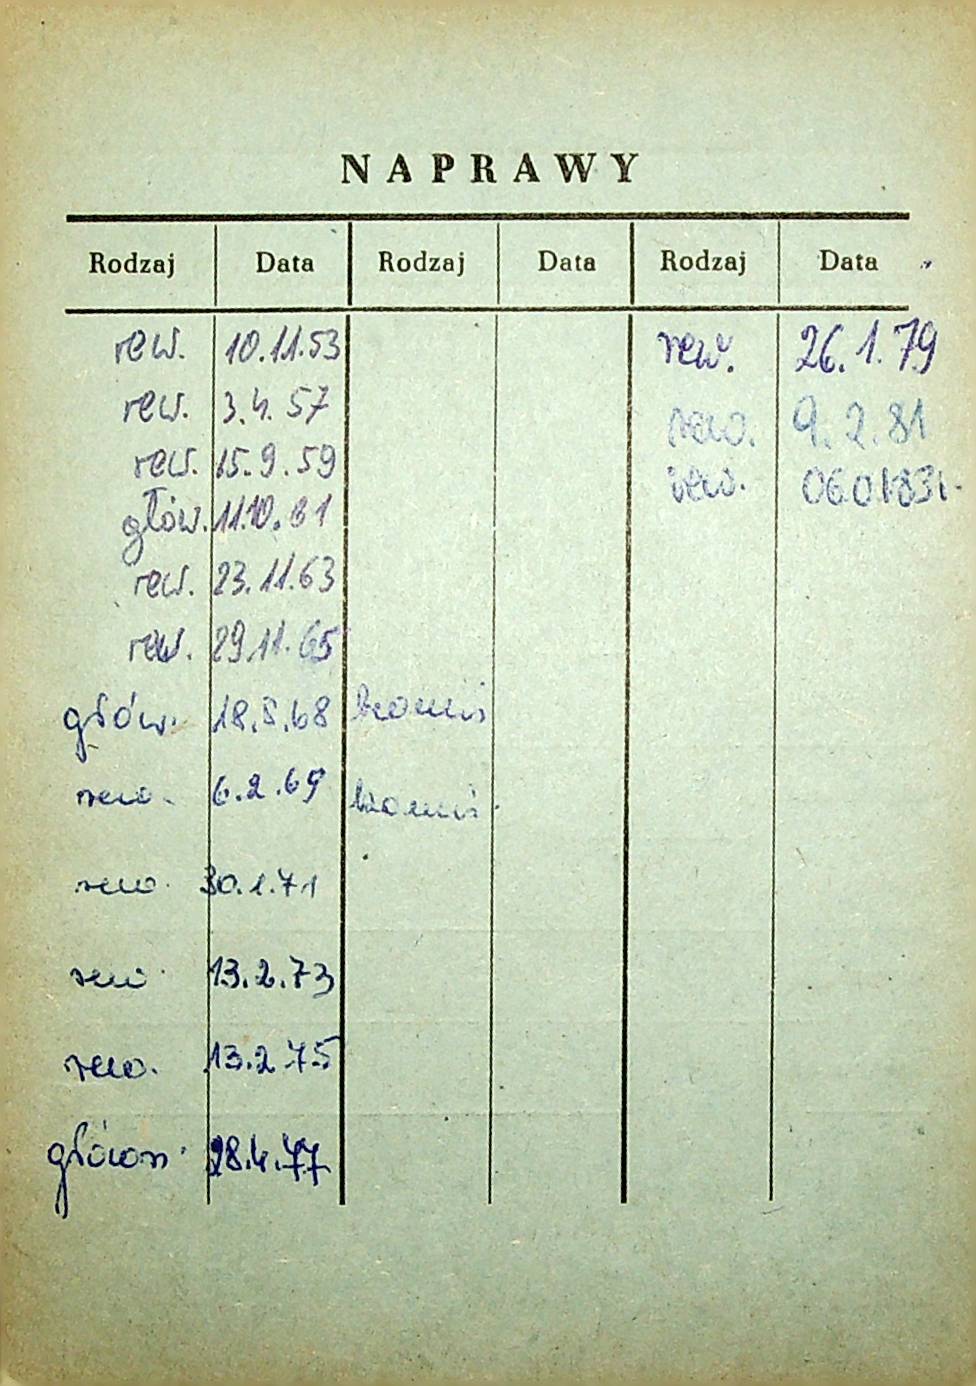 NAPRAWY
Rodzaj Data Rodzaj Data Rodzaj Data
rew. 10.11.53 rew. 26.1.79
rew. 3.4.57 rew. 9.2.81
rew. 15.9.59 rew.
głów. 11.10.61
rew. 23.11.63
rew. 29.11.65
głów. 18.5.68
rew. 6.2.69
rew. 30.1.71
rew. 13.2.73
rew. 13.2.75
główn. 28.4.77